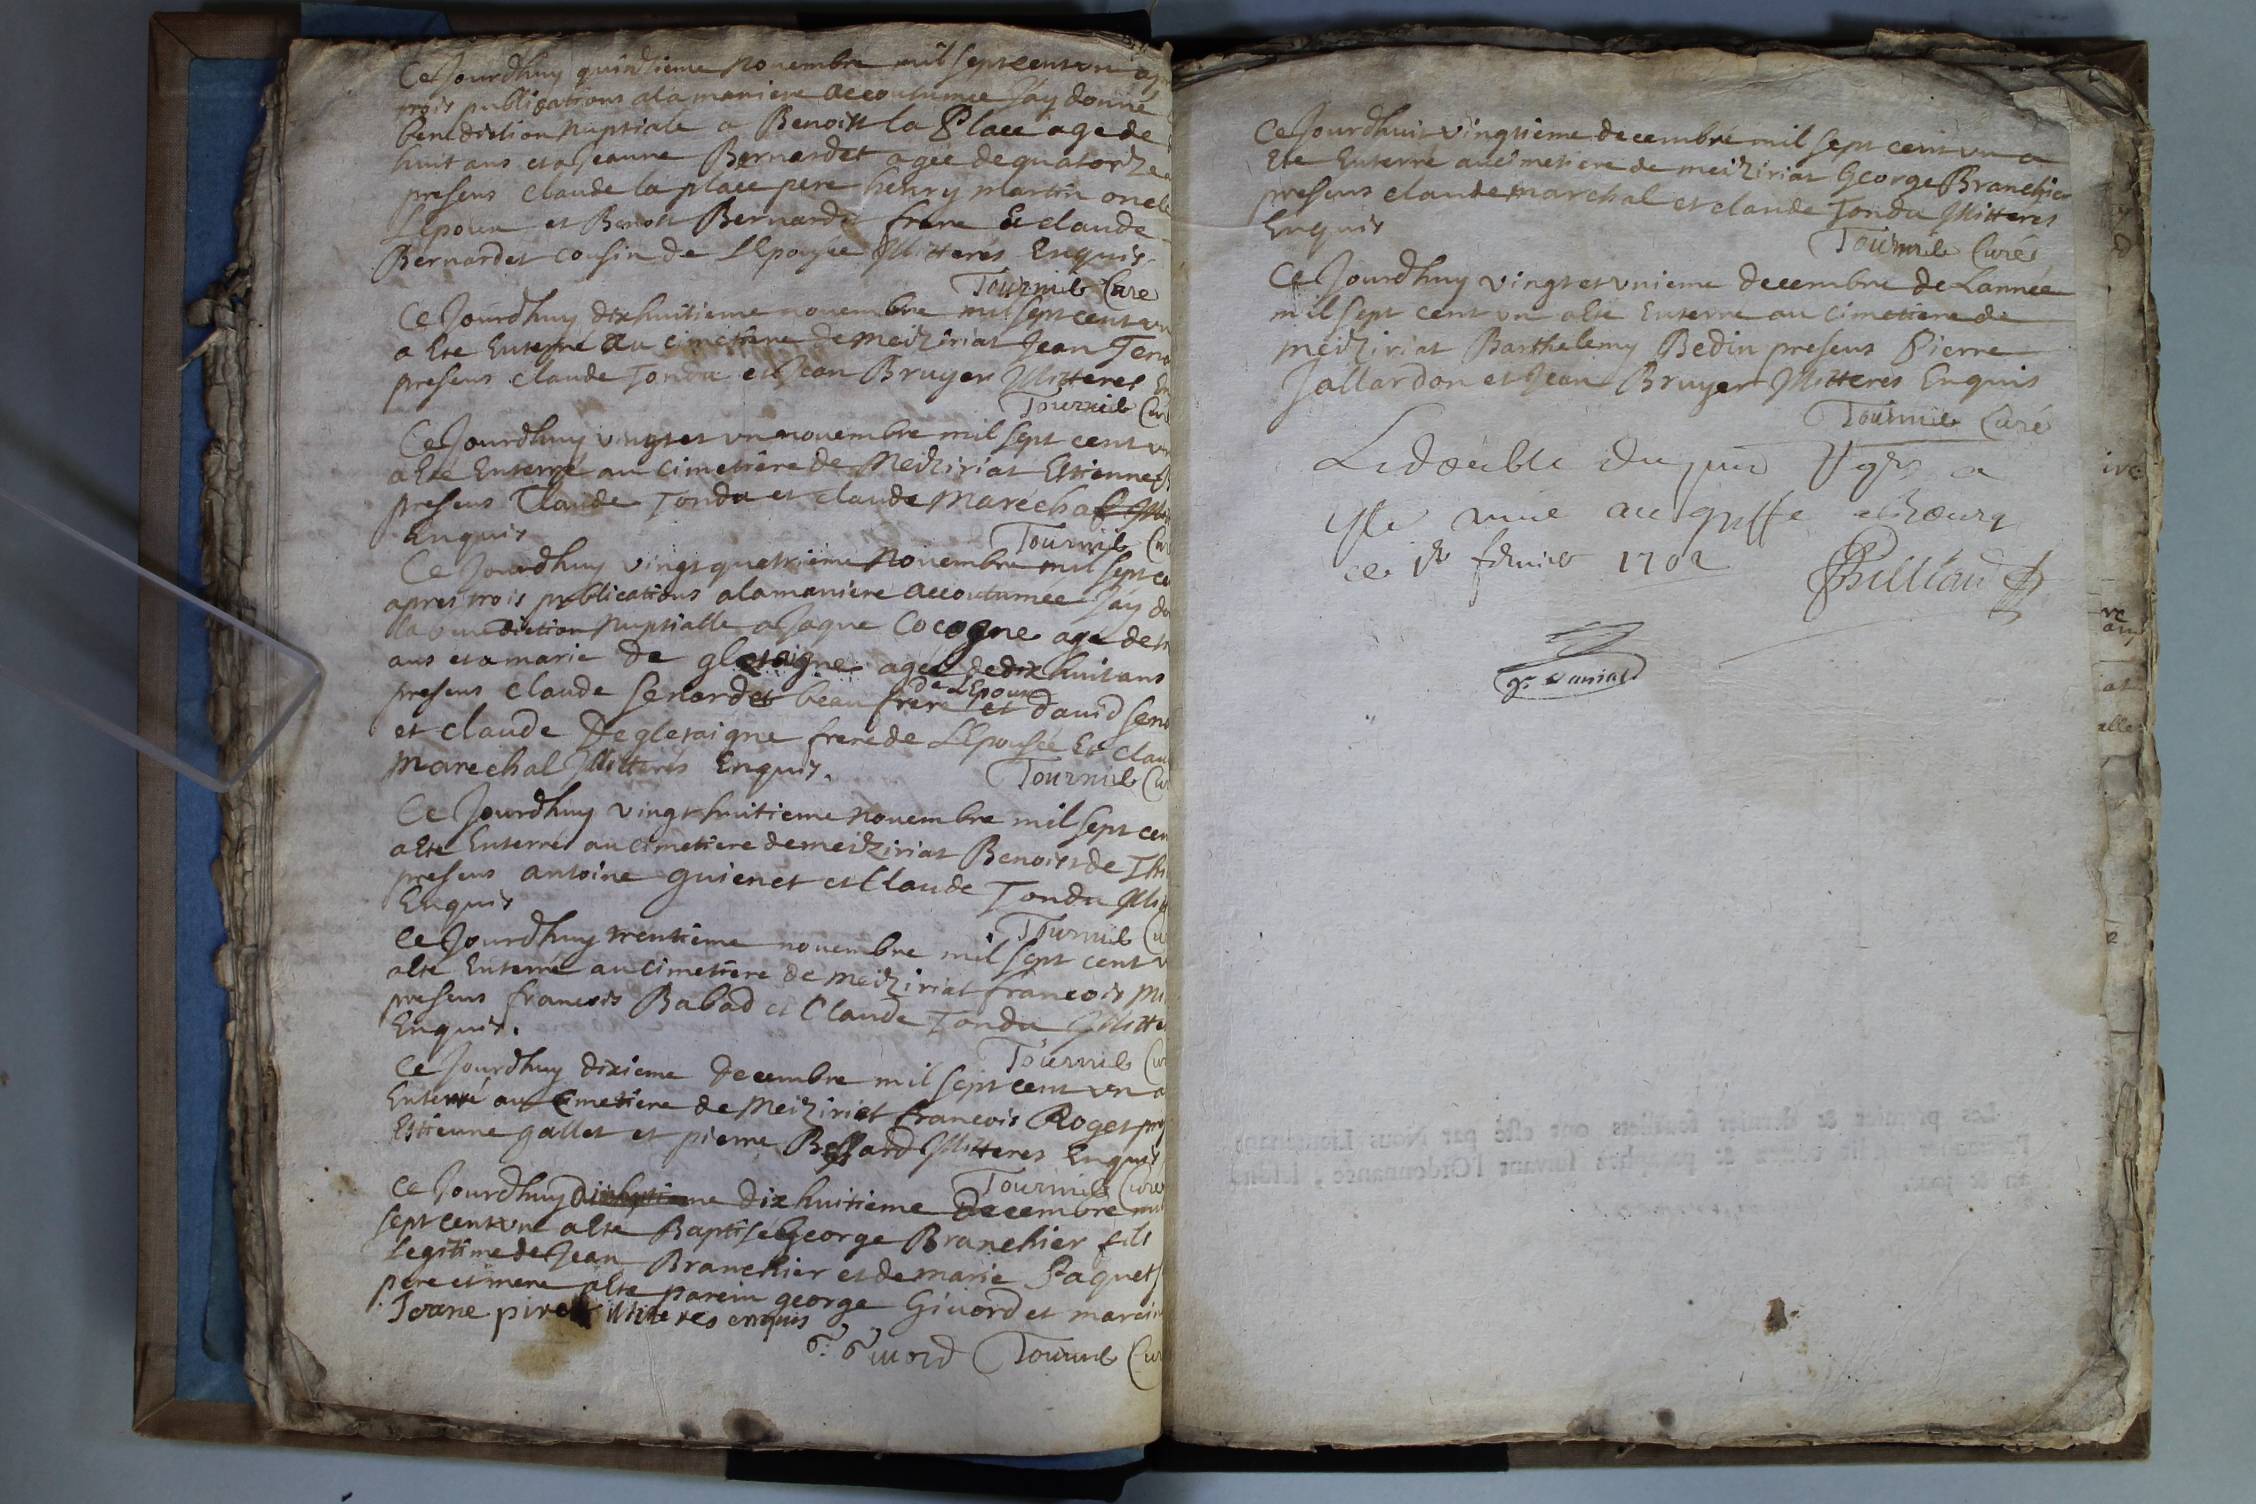 Ce Jourdhuy quinzieme novembre mil sept cent vn
trois publications a la maniere accoutumee Jay donné
benediction nuptiale a Benoist la Place age de
huit ans et a Jeanne Bernardet agée de quatorze
presens Claude la place pere henry martin oncle
Lepoux et Benoit Bernardet frere & claude
Bernardet cousin de LEpousée Illitterés Enquis
Tournib Cure
Ce Jourdhuy dixhuitieme novembre mil sept cent vn
a Ete Enterré au cimetiere de meiziriat Jean
presens claude Tondu et Jean Bruyer Illitteres
Tournib Curé
Ce Jourdhuy vingt et vn novembre mil sept cent vn
a Ete Enterré au cimetiere de Meiziriat Estienne
presens Claude Tondu et claude Maréchal
Enquis
Tournib
Ce Jourdhuy vingt quatrieme Novembre mil sept
apres trois publications a la maniere accoutumee Jay
la benediction Nuptialle a Jaque Cocogne age de
ans et a marie de gletaigne agée de dix huit ans
presens claude senardet beau frere de LEpoux et david
et claude Degletaigne frere de LEpousée Et
Marechal Illitterés Enquis.
Tournib
Ce Jourdhuy vingt huitieme Novembre mil sept
a Ete Enterré au cimetiere de meiziriat Benoist de
presens antoine guienet et Claude Tondu
Enquis
Tournib
Ce Jourdhuy trentieme novembre mil sept cent
a Ete Enterré au cimetiere de meiziriat francois
presens francois Babad et Claude Tondu
Enquis.
Tournib
Ce Jourdhuy dixieme decembre mil sept cent vn a
Enterré au cimetiere de Meiziriat francois Roget
Estienne gallet et pierre Bessard Illitteres Enquis
Tournib Curé
Ce Jourdhuy dix huitieme Decembre mil
sept cent vn a Ete Baptisé George Branchier fils
Legitime de Jean Branchier et de marie Paquet
pere et mere a Ete parein george Givord et mareine
Joane illiteres enquis
G. Givord Tournib
Ce Jourdhuit vingtieme decembre mil sept cent vn a
Ete Enterré au cimetiere de meiziriat George Branchier
presens claude marchal et claude Tondu Illitteres
Enquis
Tournib Curé
Ce Jourdhuy vingt et vnieme decembre de Lannée
mil sept cent vn a Eté Enterré au cimetiere de
meiziriat Barthelemy Bedin presens Pierre
Jallardon et Jean Bruyer Illitteres Enquis
Tournib Curé
Le double du a
au greffe
ce 1er fevrier 1702